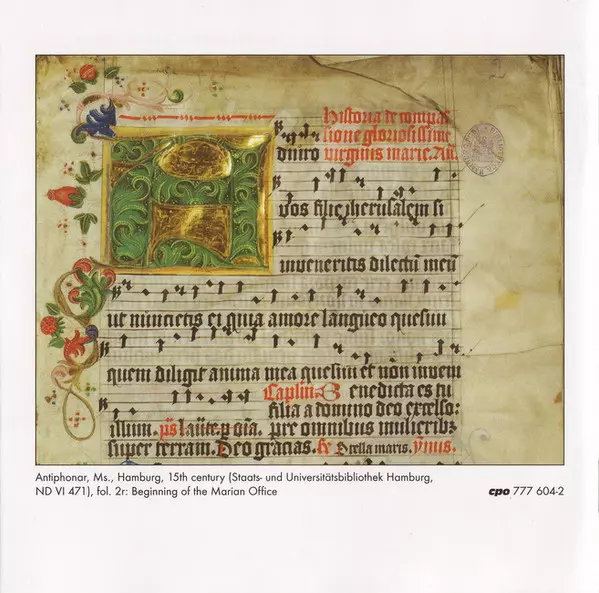 Historia de compas
sione gloriosissime
diuro virginis marie. An.
vos filie iherusalem si
inveneritis dilectū meū
ut nūncietis ei quia amore langueo quesiui
quem diligit anima mea quesiui et non inveni
Caplm. Benedicta es tu
filia a domino deo excelso:
illum. ps laute. p oīa. pre omnibus mulierib
super terram. Deo gracias. Stella maris. ymus.
Antiphonar, Ms., Hamburg, 15th century (Staats- und Universitätsbibliothek Hamburg,
ND VI 471), fol. 2r: Beginning of the Marian Office
cpo 777 604-2